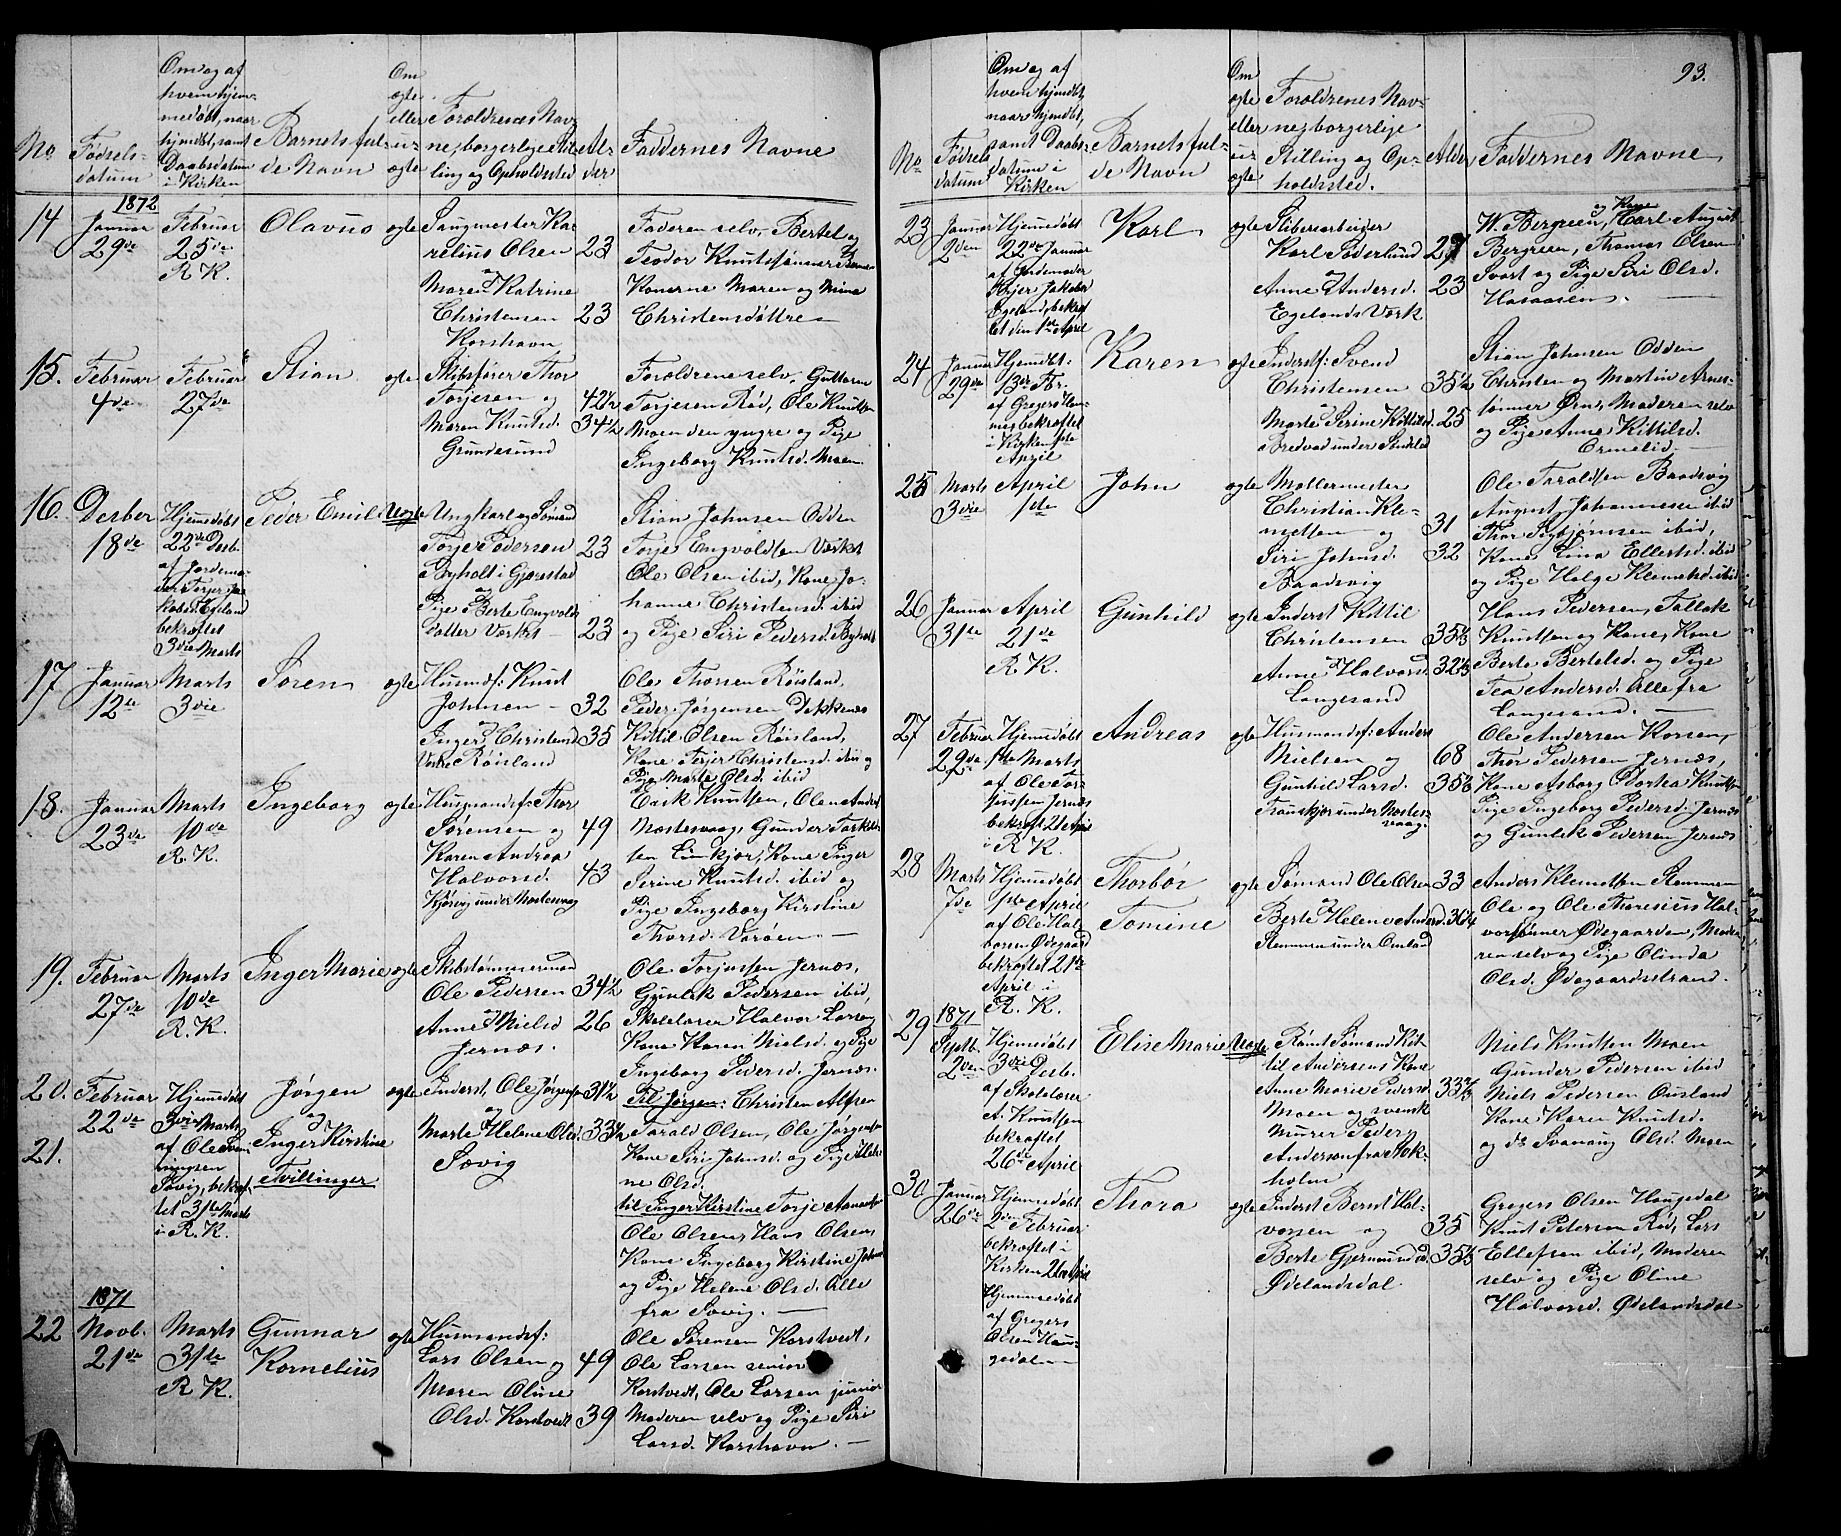 No
Fødsels-
datum
Om og af
hvem hjem-
medøbt, naar
hjmdbt, samt
Daabsdatum
i Kirken
Barnets ful-
de Navn
Om
ægte
eller
u-
ægte
Forældrenes Nav-
ne, borgerlige Stil-
ling og Opholdsted
Al-
der
Faddernes Navne
14
1872
Januar
29de
Februar
25de
R. K.
Olavus
ægte
Saugmester Kar
relius Olsen
og
Maren Katrine
Christensen
Korshavn
23
23
Faderen selv, Bertel og
Teodor Knutssønner
Konerne Maren og Mine
Christensdøttre
15.
Februar
4de
Februar
27de
Stian
ægte
Skibsfører Thor
Torjesen og
Maren Knutsd.
Grundesund
42½
34½
Forældrene selv, Guttorm
Torjesen Rød, Ole Knutsen
Moen den yngre og Pige
Ingeborg Knutsd. Moen.
16.
Decber
18de
Hjemmedøbt
22de Decb.
af Jordemo-
der Torjer Ja-
kobsd. Egeland
bekræftet
3die Marts
Peder Emil
Uægte
Ungkarl og Sømand
Torjer Pedersen
Byholt i Gjerestad
og
Pige Berte Engvolds
datter Værket
23
23
Stian Johnsen Odden
Torjer Engvoldsen Værket
Ole Olsen ibid, Kone Jo-
hanne Christensd. ibid
og Pige Siri Pedersd. Byholt
17
Januar
12te
Marts
3die
Søren
ægte
Husmdsf: Knut
Johnsen
og
Inger Christensd.
Røisland
32
35
Ole Thorsen Røisland,
Peder Jørgensen Dekkenæs
Kittil Olsen Røisland,
Kone Torjer Christensd. ibid og
Pige Marte Olsd. ibid
18.
Januar
23de
Marts
10de
R. K.
Ingeborg
ægte
Husmandsf: Thor
Sørensen og
Karen Andrea
Halvorsd.
Kjørvig under Nostervaag
49
43
Eirik Knutsen, Ole Anders
Nostervaag, Gunder Torkels-
sen Limkjær, Kone Inger
Serine Knutsd. ibid og
Pige Ingeborg Kirstine
Thorsd. Varøen
19.
Februar
27de
Marts
10de
R. K.
Inger Marie
ægte
Skibstømmermand
Ole Pedersen
og
Anne Nielsd
Jernæs.
34½
26
Ole Torjussen Jernæs,
Gunlek Pedersen ibid,
Skolelærer Halvor Larsen
Kone Karen Nielsd. og Pige
Ingeborg Pedersd. Jernæs.
20.
21.
Februar
22de
Hjemmedøbt
3die Marts
af Ole
Søvig, bekræf-
tet 31te Marts
i R. K.
Jørgen
og
Inger Kirstine
Tvillinger
ægte
Inderst, Ole Jørgensen
og
Marte Helene Olsd.
Søvig
31½
33½
Til Jørgen: Christen Alfsen
Tarald Olsen, Ole Jørgensen
Kone Siri Johnsd. og Pige Hele-
ne Olsd.
til Inger Kirstine Torje
Ole Olsen, Hans Olsen,
Kone Ingeborg Kirstine Johnsd
og Pige Helene Olsd. Alle
fra Søvig.
22
1871
Novb.
21de
Marts
31te
R. K.
Gunnar
Kornelius
ægte
Husmandsf:
Lars Olsen og
Maren Oline
Olsd. Korstvedt
49
39
Ole Sørensen Korstvedt,
Ole Larsen senior
Korstvedt, Ole Larsen junior
Moderen selv og Pige Siri
Larsd. Korshavn.
93.
No
Fødsels
datum
Om og af
hvem hjmdbt,
naar hjmdbt,
samt Daabs-
datum i
Kirken
Barnets ful-
de Navn
Om
ægte
eller
u-
ægte
Forældrenes Nav-
ne, borgerlige
Stilling og Op-
holdsted.
Alder
Faddernes Navne
23
Januar
2den
Hjemmedøbt
22de Januar
af Jordemoder
Torjer Jakobsd
Egeland, bekræf
tet den 1ste April
Karl
ægte
Støberarbeider
Karl Søderlund
og
Anne Andersd.
Egelands Værk
27
23
W. Bergreen, og Kone Karl August
Bergreen, Thomas Olsen
Svart og Pige Siri Olsd.
Hasaasen
24
Januar
29de
Hjemdbt:
13de Fbr.
af Gregers
bekræftet
i Kirken 1ste
April
Karen
ægte
Inderst: Svend
Christensen
og
Marte Serine Kittilsd.
Bredvad under
35½
25
Stian Johnsen Odden
Christen og Martin Arnes-
sønner Øen, Moderen selv
og Pige Anne Kittilsd.
Ormelid.
25
Marts
3die
April
1ste
John
ægte
Møllermester
Christian Kle-
metsen og
Siri Johnsd.
Baadsvig
31
32
Ole Taraldsen Baadsvig
August Johannesen ibid
Thor Sigbjørnsen ibid,
Kone Lina Ellertsd. ibid
og Pige Helge Klemetsd. ibid
26
Januar
31te
April
21de
R. K.
Gunhild
ægte
Inderst Kittil
Christensen
og
Anne Halvorsd.
Langesand
35⅓
32⅓
Hans Pedersen, Tallak
Knutsen og Kone, Kone
Berte Bertelsd. og Pige
Tea Andersd. Alle fra
Langesand.
27
Februar
29de
Hjemmedøbt
1ste Marts
af Ole Tor-
jussen Jernæs
bekræft. 21 April
i R. K.
Andreas
ægte
Husmandsf: Anders
Nielsen og
Gunhild Larsd.
Trauskjær under Noster-
vaag.
68
35½
Ole Andersen Korsen,
Thor Pedersen Jernæs,
Kone Asborg Dorthea Knutsen
Pige Ingeborg Pedersd. Jernæs
og Gunlek Pedersen Jernæs
28
Marts
7de
Hjemmedøbt
1ste April
af Ole Hal-
vorsen Ødegaard
bekræftet 21de
April i
R. K.
Thorbør
Tomine
ægte
Sømand Ole Olsen
og
Berte Helene Andersd.
Stemmen under Omland
33
36¼
Anders Klemetsen Stemmen
Ole og Ole Tharesius Hal-
vorsønner Ødegaarden, Mode
ren selv og Pige Olinda
Olsd. Ødegaardsstrand.
29
1871
Septb.
2den
Hjemmedøbt
3die Decb.
af Skolelærer
A. Knutsen
bekræftet
26de April
Elise Marie
Uægte
Rømt Sømand Kit-
til Andersens Kone
Anne Marie Pedersd
Moen og svensk
Murer Peder
Anderson fra Stok-
holm
33⅔
Niels Knutsen Moen
Gunder Pedersen ibid
Niels Pedersen Ousland
Kone Karen Knutsd.
og ds Svanaug Olsd. Moen
30
Januar
26de
Hjemmedøbt
2den Februar
bekræftet i
Kirken 26de April
Hjemmedøbt
af Gregers
Olsen Hau-
gedalen
Thora
ægte
Inderst Berndt Hal-
vorsen og
Berte Gjermundsd.
Ødelandsdal.
35
35⅓
Gregers Olsen Haugedal
Knut Petersen Rød, Lars
Ellefsen ibid, Moderen
selv og Pige Oline
Halvorsd. Ødelandsdal